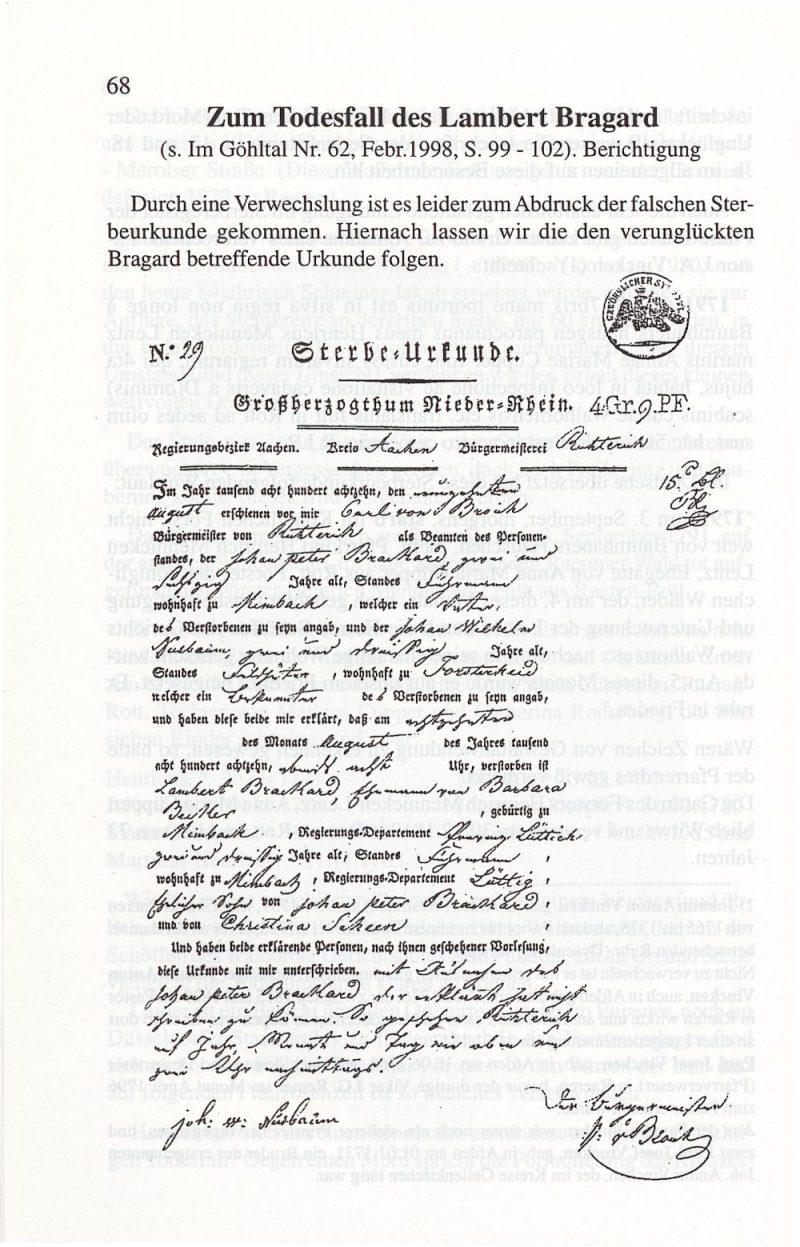 68
Zum Todesfall des Lambert Bragard
(s. Im Göhltal Nr. 62, Febr.1998, S. 99 - 102). Berichtigung
Durch eine Verwechslung ist es leider zum Abdruck der falschen Ster-
beurkunde gekommen. Hiernach lassen wir die den verunglückten
Bragard betreffende Urkunde folgen.
N.º 29 Sterbe-Urkunde.
Großherzogthum Nieder-Rhein. 4.Gr.9.PF.
Regierungsbezirk Aachen. Kreis Aachen Bürgermeisterei Richterich
Im Jahr tausend acht hundert achtzehn, den neunzehnten
August erschienen vor mir Carl von Broich
Bürgermeister von Richterich als Beamten des Personen-
standes, der Johan Peter Brackhard zwei und
Jahre alt, Standes Fuhrmann
wohnhaft zu Mimbach, welcher ein Vater
des Verstorbenen zu seyn angab, und der Johan Wilhelm
Nusbaum, zwei und dreissig Jahre alt,
Standes, wohnhaft zu Forsterheid
welcher ein Bekannter des Verstorbenen zu seyn angab,
und haben diese beide mir erklärt, daß am achtzehnten
des Monats August des Jahres tausend
acht hundert achtzehn, abends acht Uhr, verstorben ist
Lambert Brackhard Ehemann von Barbara
, gebürtig zu
Mimbach, Regierungs-Departement Lüttich
zwei und dreissig Jahre alt, Standes Fuhrmann,
wohnhaft zu Mimbach, Regierungs-Departement Lüttig,
Ehelicher Sohn von Johan Peter Brackhard,
und von Christina Scheen
Und haben beide erklärende Personen, nach ihnen geschehener Vorlesung,
diese Urkunde mit mir unterschrieben. mit Ausnahm des
Johan Peter Brackhard der erklärt hat nicht
schreiben zu können. So geschehen Richterich
auf Jahr, Monath und Tag wie oben um
zwei Uhr nachmittags.
Der Bürgermeister
Joh. W. Nusbaum
v Broich